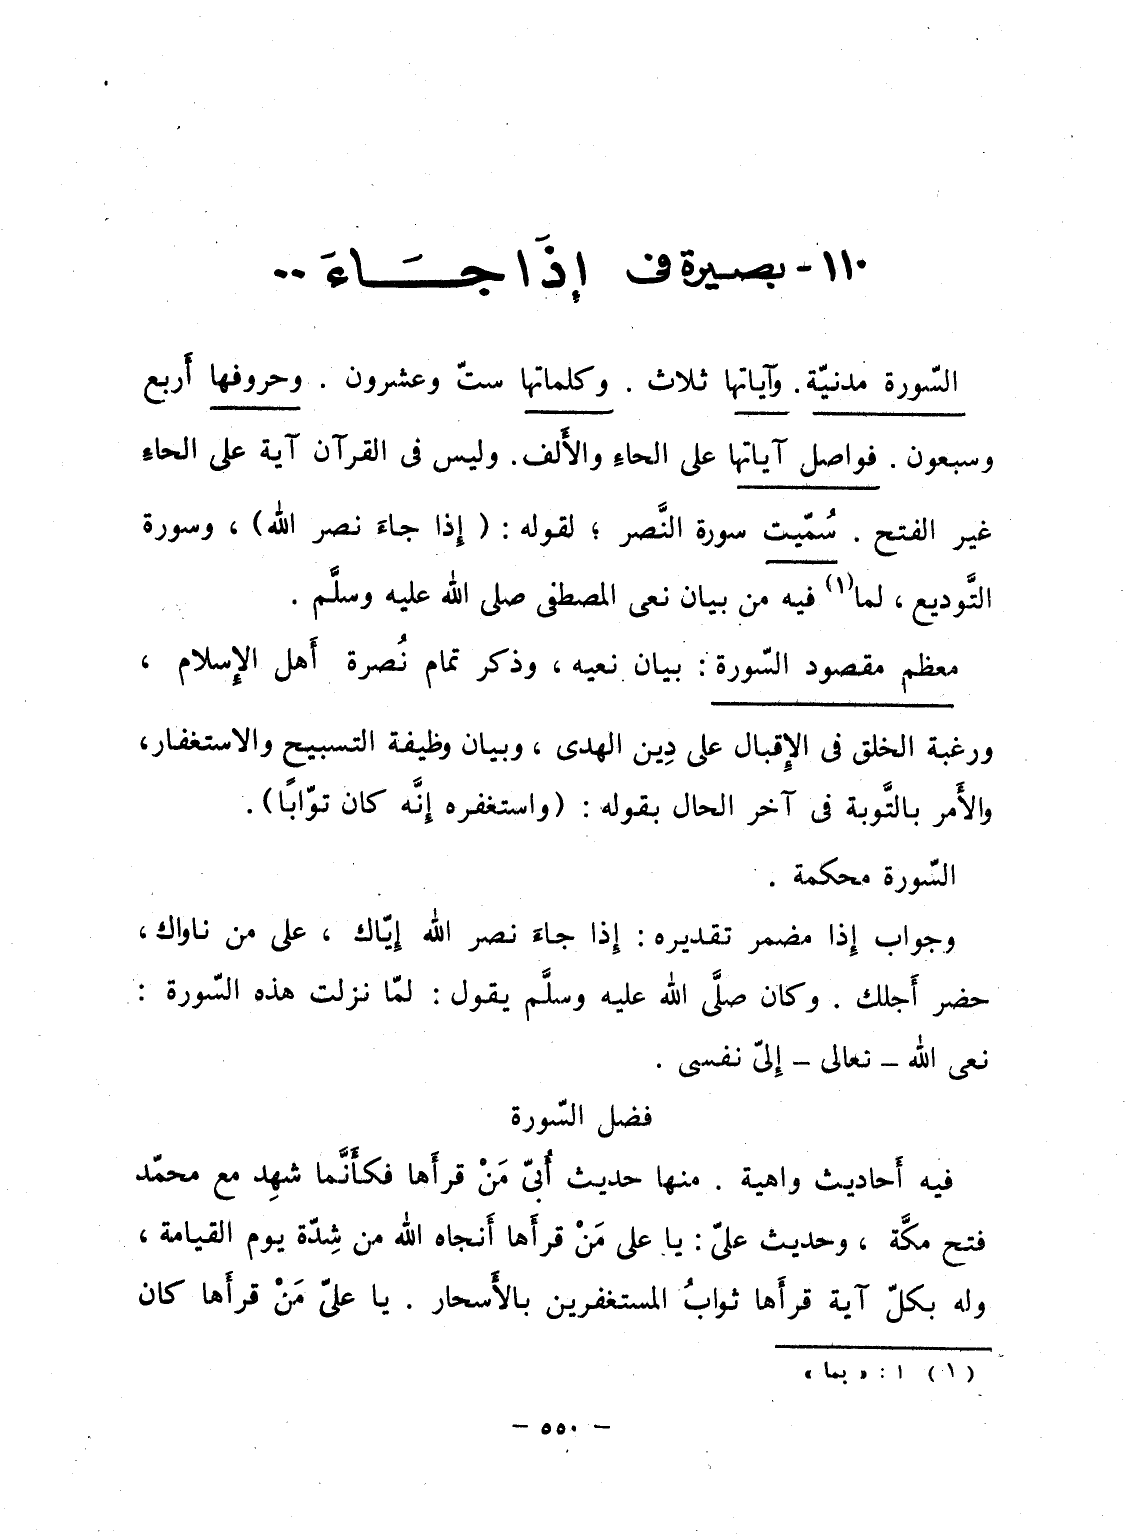 ١١٠- بصيرة فى إِذَا جَــاءَ ..
السّورة مدنيّة . وآياتها ثلاث . وكلماتها ستّ وعشرون . وحروفها أَربع
وسبعون . فواصل آياتها على الحاءِ والأَلف . وليس فى القرآن آية على الحاءِ
غير الفتح . سُمّيت سورة النَّصر ؛ لقوله : ( إِذا جاءَ نصر الله ) ، وسورة
التَّوديع ، لما(١) فيه من بيان نعى المصطفى صلى الله عليه وسلَّم .
معظم مقصود السّورة : بيان نعيه ، وذكر تمام نُصرة أَهل الإِسلام ،
ورغبة الخلق فى الإِقبال على دِين الهدى ، وبيان وظيفة التسبيح والاستغفار ،
والأَمر بالتَّوبة فى آخر الحال بقوله : (واستغفره إِنَّه كان توّابًا) .
السّورة محكمة .
وجواب إِذا مضمر تقديره : إِذا جاءَ نصر الله إِيّاك ، على من ناواك ،
حضر أَجلك . وكان صلَّى الله عليه وسلَّم يقول : لمّا نزلت هذه السّورة :
نعى الله – تعالى – إِلىّ نفسى .
فضل السّورة
فيه أَحاديث واهية . منها حديث أُبىّ مَنْ قرأَها فكأَنَّما شهِد مع محمّد
فتح مكَّة ، وحديث علىّ : يا على مَنْ قرأَها أَنجاه الله من شِدّة يوم القيامة ،
وله بكلّ آية قرأَها ثوابُ المستغفرين بالأَسحار . يا علىّ مَنْ قرأَها كان
(١) ا : « بما »
– ٥٥٠ –